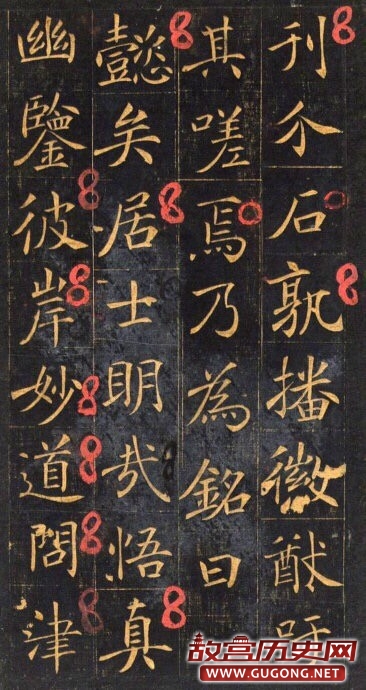 刊介石孰播徽猷
其嗟焉乃為銘曰
懿矣居士明哉悟真
幽鑒彼岸妙道問津
故宫历史网
WWW.GUGONG.NET